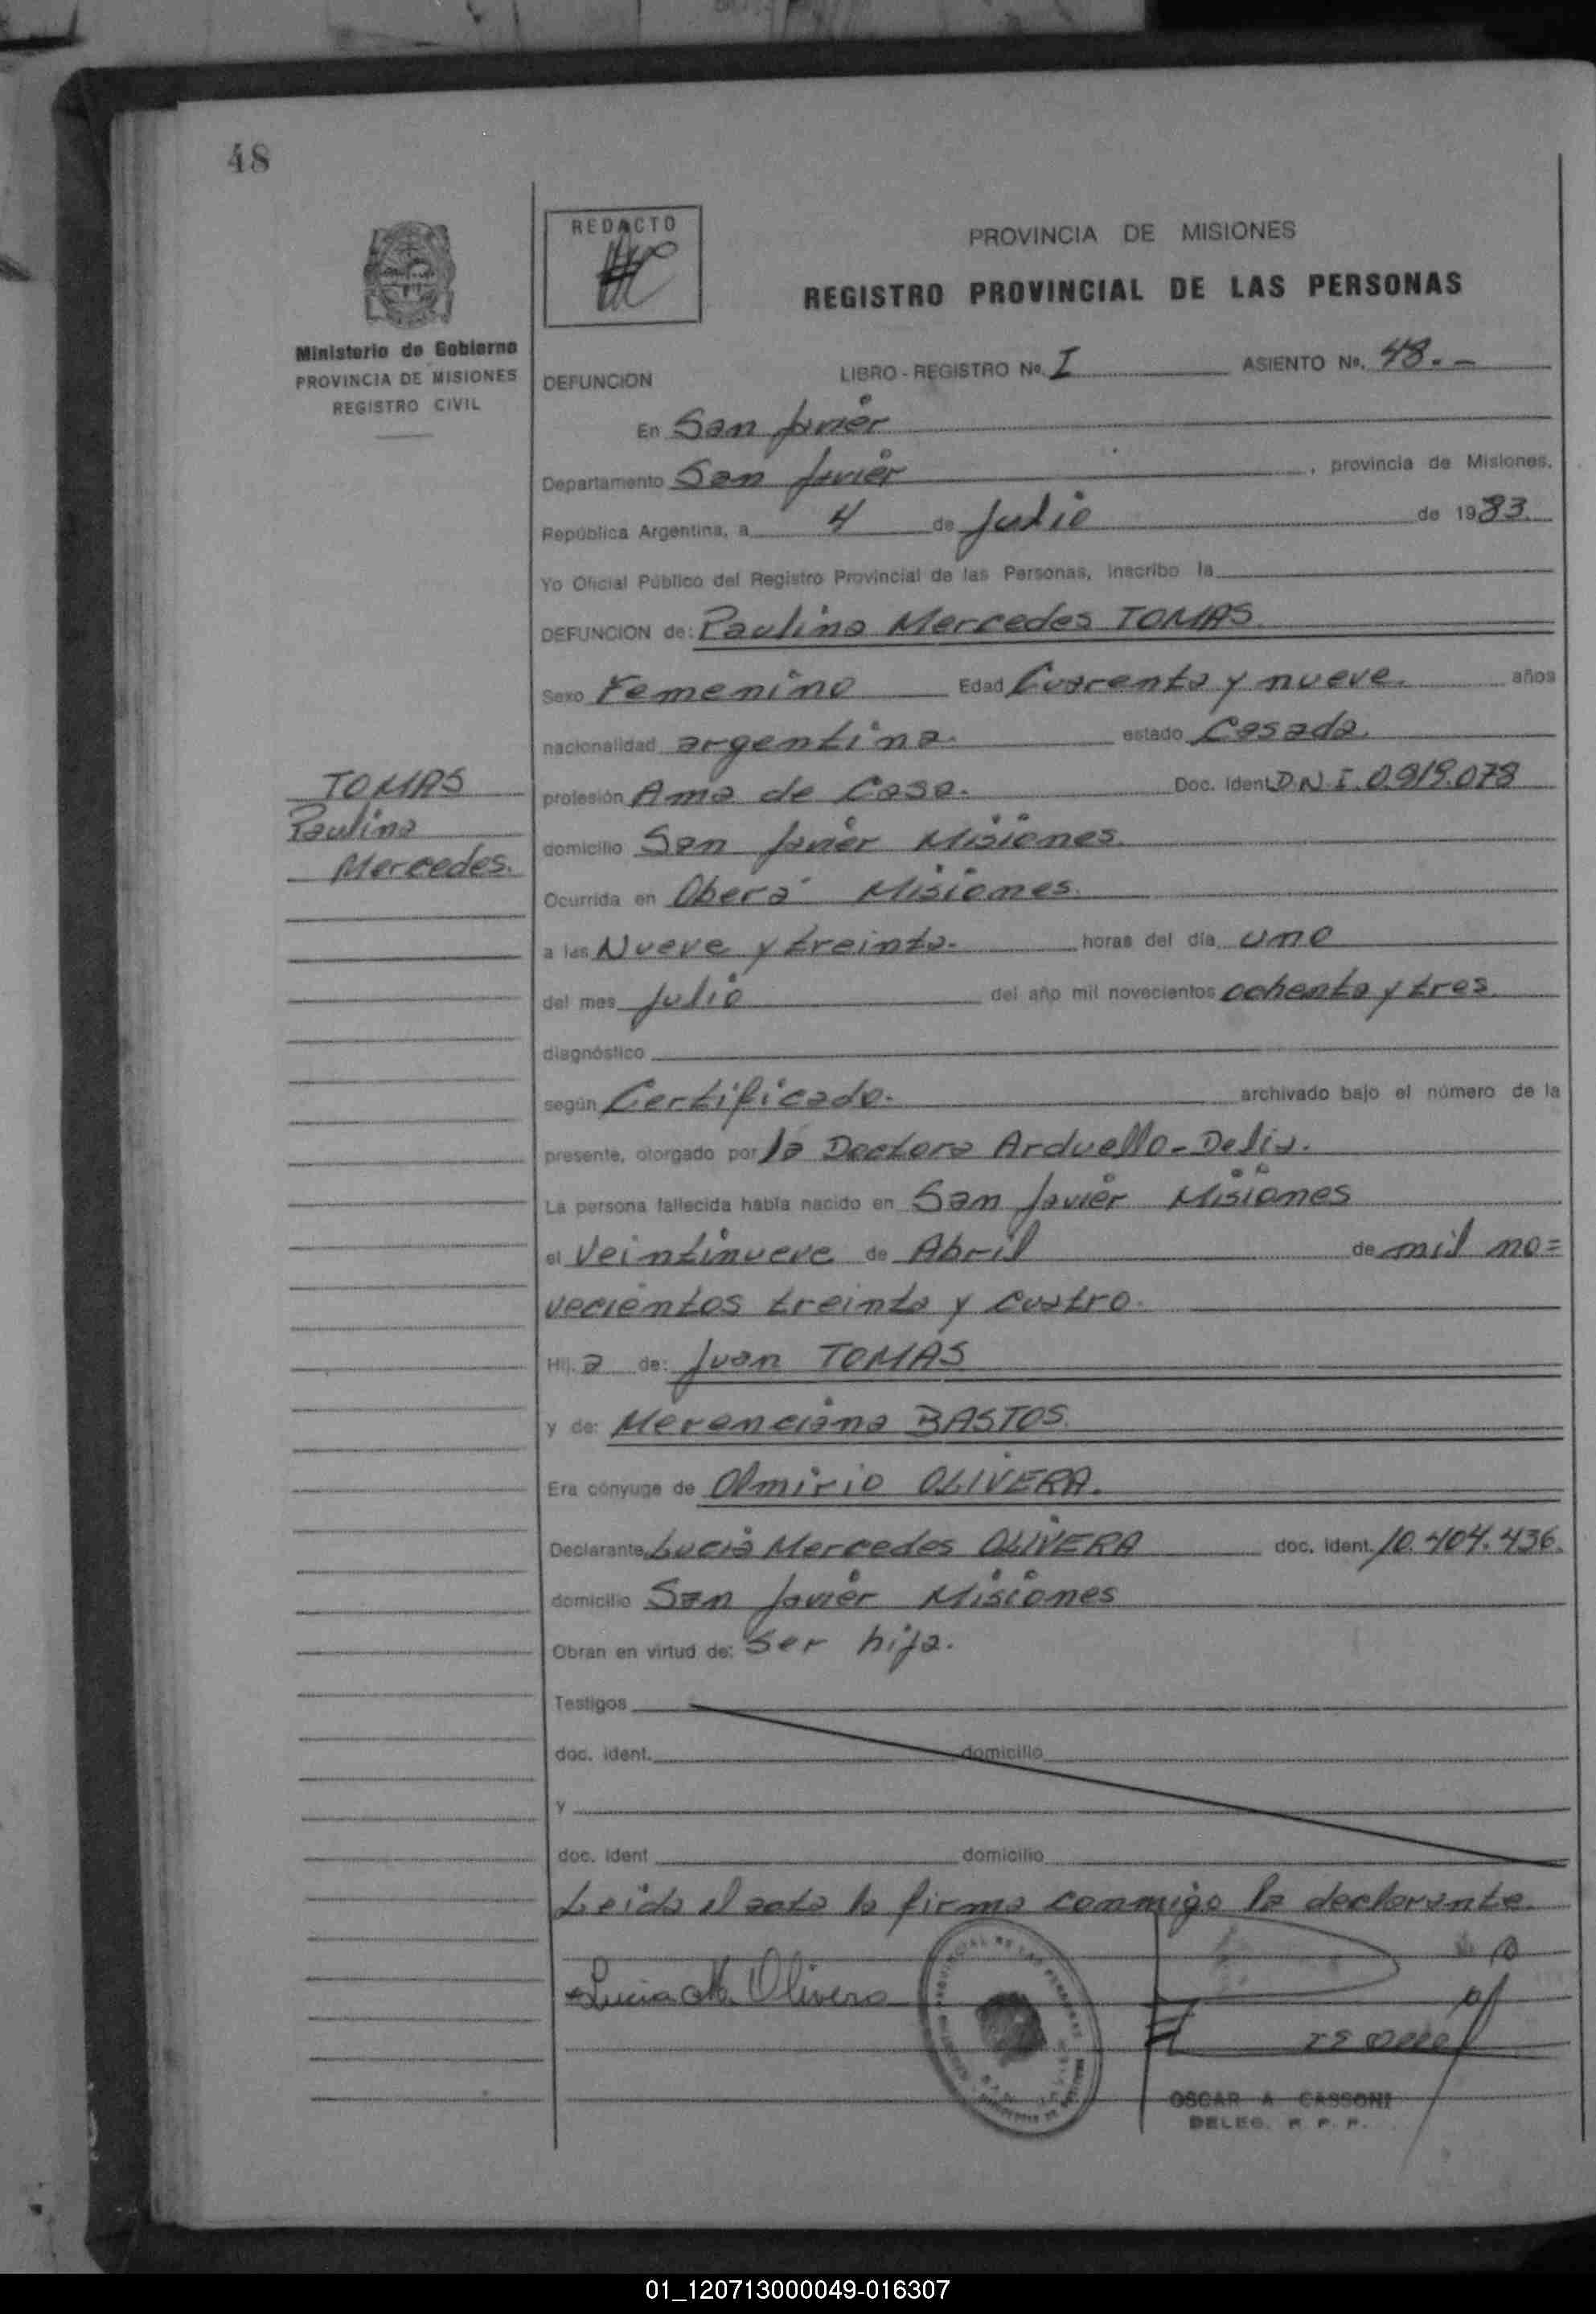 48
REDACTO
PROVINCIA DE MISIONES
REGISTRO PROVINCIAL DE LAS PERSONAS
Ministerio de Gobierno
PROVINCIA DE MISIONES
REGISTRO CIVIL
DEFUNCION LIBRO - REGISTRO Nº. I ASIENTO Nº. 48.-
En San Javier
Departamento San Javier, provincia de Misiones.
República Argentina, a 4 de Julio de 1983.
Yo Oficial Público del Registro Provincial de las Personas, inscribo la
DEFUNCION de: Paulina Mercedes TOMAS.
Sexo Femenino Edad Cuarenta y nueve. años
nacionalidad argentina. estado Casada.
TOMAS
Paulina
Mercedes.
profesión Ama de Casa. Doc. Ident. D.N.I. 0.919.078
domicilio San Javier Misiones.
Ocurrida en Oberá Misiones.
a las Nueve y treinta. horas del día uno
del mes Julio del año mil novecientos ochenta y tres.
diagnóstico
según Certificado. archivado bajo el número de la
presente, otorgado por la Doctora Arduello-Delia.
La persona fallecida había nacido en San Javier Misiones
el Veintinueve de Abril de mil no=
vecientos treinta y cuatro.
Hij a de: Juan TOMAS
y de: Merenciana BASTOS.
Era cónyuge de Olmirio OLIVERA.
Declarante Lucia Mercedes OLIVERA doc. ident. 10.404.436.
domicilio San Javier Misiones
Obran en virtud de: Ser hija.
Testigos
doc. ident. domicilio
y
doc. ident domicilio
Leida el acta la firma conmigo la declarante.
Lucia M. Olivera
OSCAR A CASSONI
DELEG. R. P. P.
01_120713000049-016307